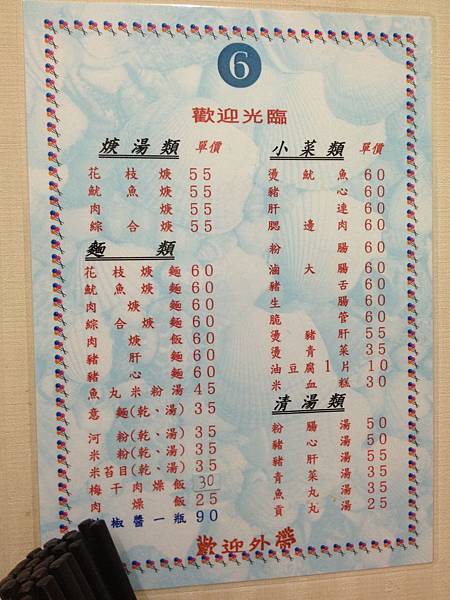 6
歡迎光臨
焿湯類 單價
花枝焿 55
魷魚焿 55
肉焿 55
綜合焿 55
麵類
花枝焿麵 60
魷魚焿麵 60
肉焿麵 60
綜合焿麵 60
肉焿飯 60
豬肝麵 60
豬心麵 60
魚丸米粉湯 45
意麵(乾、湯) 35
河粉(乾、湯) 35
米粉(乾、湯) 35
米苔目(乾、湯) 35
梅干肉燥飯 30
肉燥飯 25
椒醬一瓶 90
小菜類 單價
燙魷魚 60
豬心 60
肝連 60
腮邊肉 60
粉腸 60
滷大腸 60
豬舌 60
生腸 60
脆管 60
燙豬肝 55
燙青菜 35
油豆腐1片 10
米血糕 30
清湯類
粉腸湯 50
豬心湯 50
豬肝湯 55
青菜湯 35
魚丸湯 35
貢丸湯 25
歡迎外帶